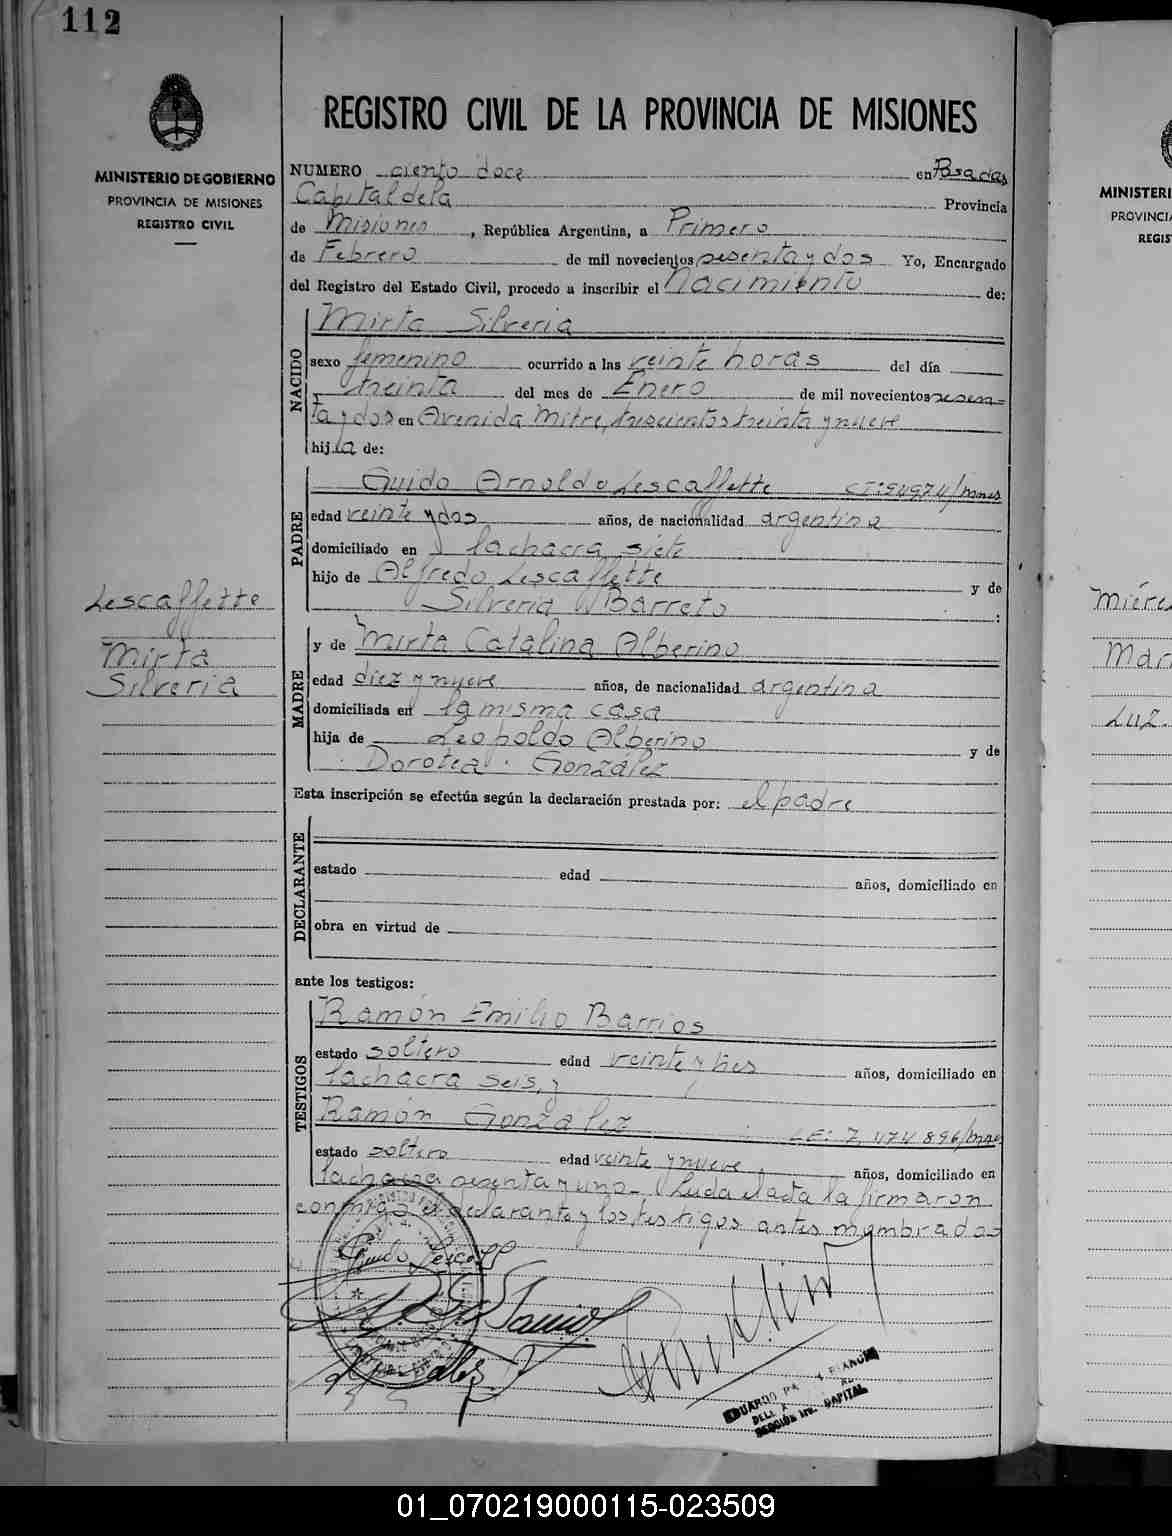 112
MINISTERIO DE GOBIERNO
PROVINCIA DE MISIONES
REGISTRO CIVIL
Lescaffette
Mirta
Silveria
REGISTRO CIVIL DE LA PROVINCIA DE MISIONES
NUMERO ciento doce en Posadas
Capital de la Provincia
de Misiones, República Argentina, a Primero
de Febrero de mil novecientos sesenta y dos Yo, Encargado
del Registro del Estado Civil, procedo a inscribir el Nacimiento de:
NACIDO
Mirta Silveria
sexo femenino ocurrido a las veinte horas del día
treinta del mes de Enero de mil novecientos sesen=
ta y dos en Avenida Mitre, trescientos treinta y nueve
hija de:
PADRE
Guido Arnoldo Lescaffette
edad veinte y dos años, de nacionalidad argentina
domiciliado en la chacra siete
hijo de Alfredo Lescaffette y de
Silveria Barreto :
MADRE
y de Mirta Catalina Alberino
edad diez y nueve años, de nacionalidad argentina
domiciliada en la misma casa
hija de Leopoldo Alberino y de
Dorotea González
Esta inscripción se efectúa según la declaración prestada por: el padre
DECLARANTE
estado edad años, domiciliado en
obra en virtud de
ante los testigos:
TESTIGOS
Ramón Emilio Barrios
estado soltero edad veinte y tres años, domiciliado en
la chacra seis, y
Ramón González LE: 7,474 896/mnes
estado soltero edad veinte y nueve, años, domiciliado en
la chacra sesenta y uno- Leida el acta la firmaron
conmigo el declarante y los testigos antes mombrados
Guido Lescaff
SECCION CAPITAL
MINISTERI
PROVINCIA
REGIS
Miérez
Mar
Luz.
01_070219000115-023509